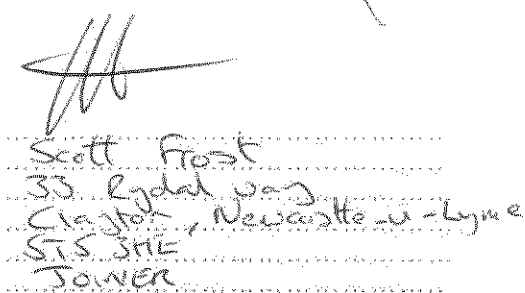 Scott Frost
33 Rydal Way
Clayton, Newcastle-u-Lyme
ST5 3HE
JOINER